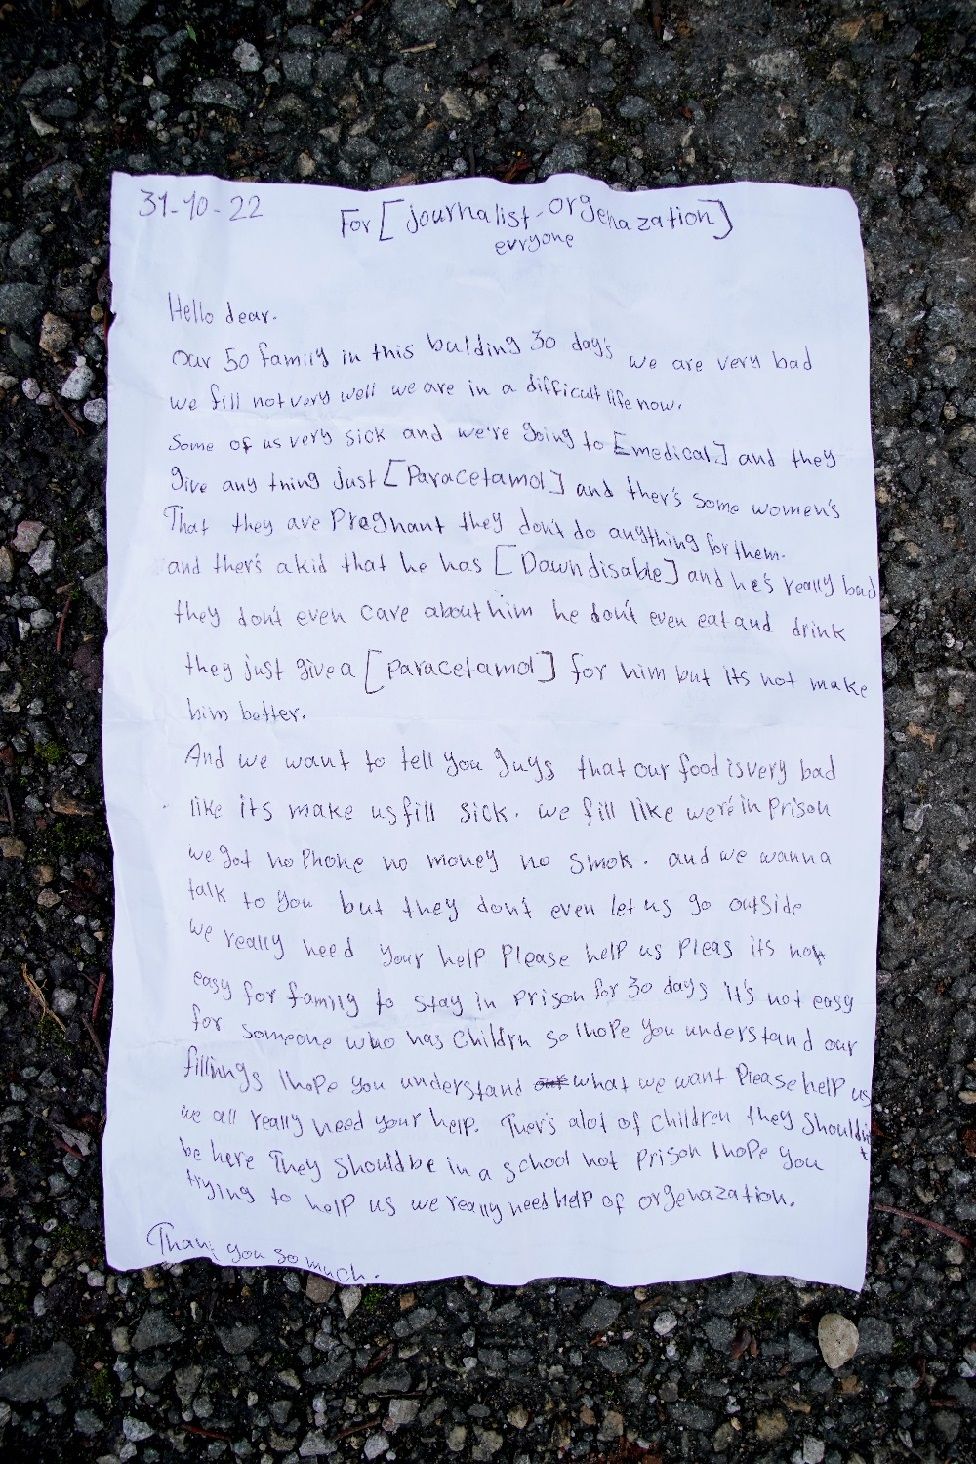 31-10-22
For [journalist-orgenazation]
evryone
Hello dear.
Our 50 family in this bulding 30 day's we are very bad
we fill not very well we are in a difficult life now.
Some of us very sick and we're going to [medical] and they
give any thing Just [Paracetamol] and ther's some women's
That they are Pregnant they don't do anything for them.
and ther's a kid that he has [Down disable] and he's really bad
they don't even care about him he don't even eat and drink
they just give a [paracetamol] for him but its not make
him better.
And we want to tell you guys that our food is very bad
like its make us fill sick. we fill like were in prison
we got no Phone no money no smok. and we wanna
talk to you but they don't even let us go outside
we really need your help Please help us Pleas its not
easy for family to stay in Prison for 30 days it's not easy
for someone who has Childrn so I hope you understand our
fillings I hope you understand our what we want Please help us
we all really need your help. Ther's alot of Children they shouldn't
be here They should be in a school not prison I hope you
trying to help us we really need help of orgenazation.
Thank you so much.